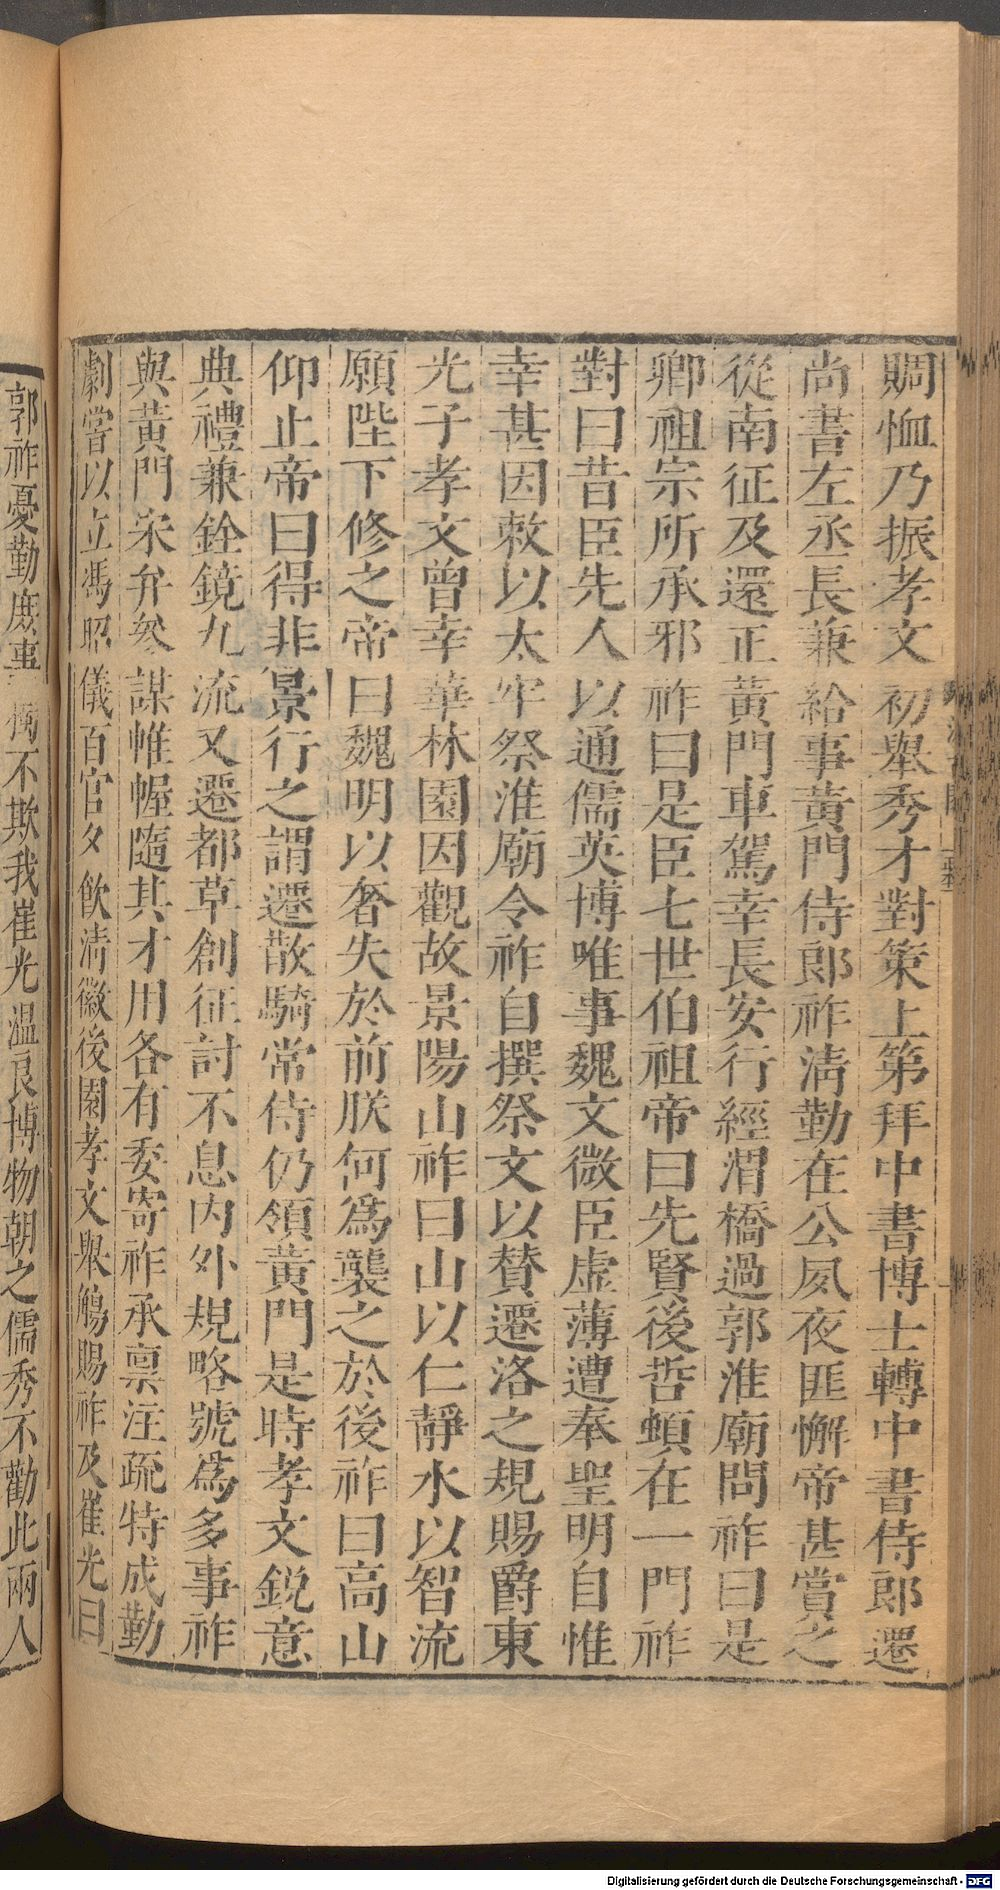 賙恤乃振孝文初舉秀才對策上第拜中書博士轉中書侍郎遷
尚書左丞長兼給事黃門侍郎祚淸勤在公夙夜匪懈帝甚賞之
從南征及還正黃門車駕幸長安行經渭橋過郭淮廟問祚曰是
卿祖宗所承邪祚曰是臣七世伯祖帝曰先賢後哲頓在一門祚
對曰昔臣先人以通儒英博唯事魏文微臣虛薄遭奉聖明自惟
幸甚因敕以太牢祭淮廟令祚自撰祭文以賛遷洛之規賜爵東
光子孝文曾幸華林園因觀故景陽山祚曰山以仁靜水以智流
願陛下修之帝曰魏明以奢失於前朕何爲襲之於後祚曰高山
仰止帝曰得非景行之謂遷散騎常侍仍領黃門是時孝文鋭意
典禮兼銓鏡九流又遷都草創征討不息内外規略號爲多事祚
與黃門宋弁叅謀帷幄隨其才用各有委寄祚承禀注疏特成勤
劇嘗以立馮昭儀百官夕飲淸徽後園孝文舉觴賜祚及崔光曰
郭祚憂勤庶事獨不欺我崔光温良博物朝之儒秀不勸此兩人
Digitalisierung gefördert durch die Deutsche Forschungsgemeinschaft - DFG